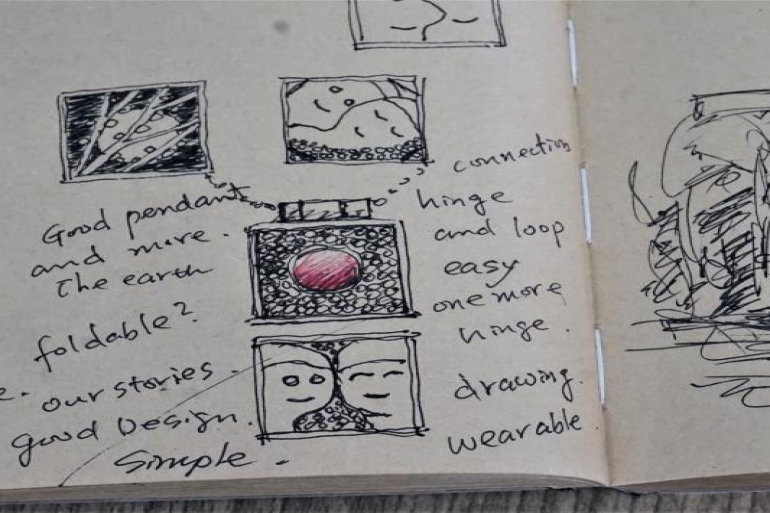 Good pendant
and more.
The earth
foldable?
e. our stories.
good Design.
Simple.
connection
hinge
and loop
easy
one more
hinge.
drawing.
wearable.